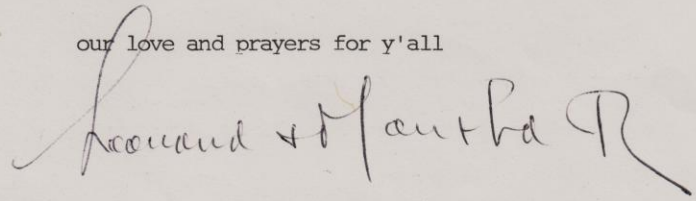 our love and prayers for y'all
Leonard + Martha R